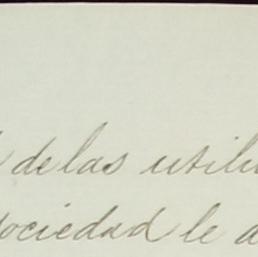 de las utili
sociedad le a